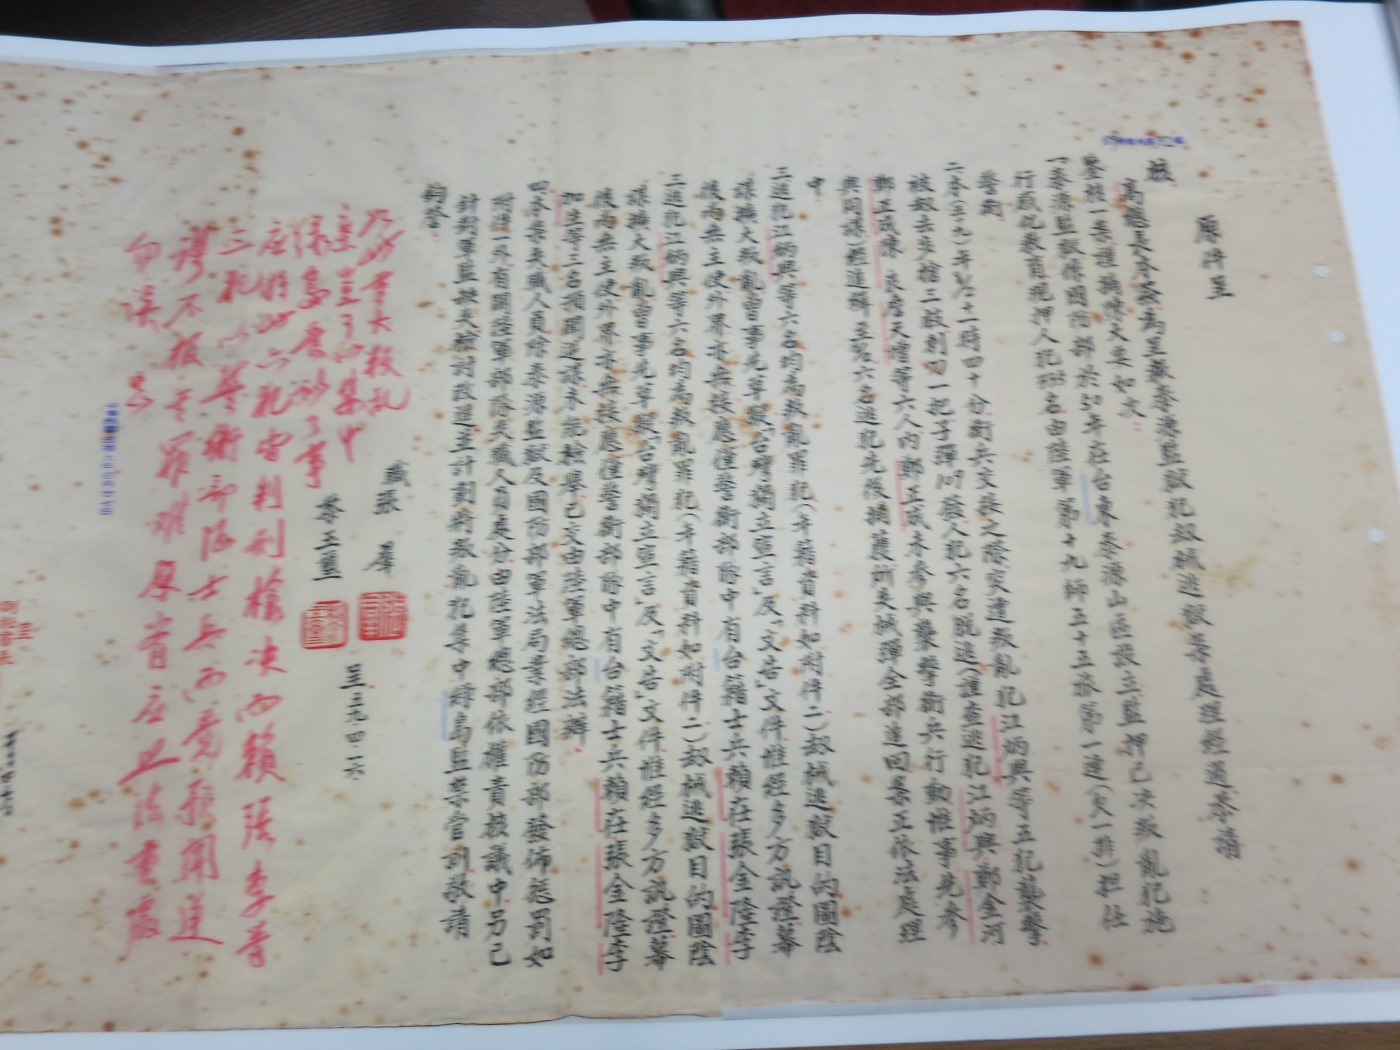 原件呈
核
高魁元本發為呈報泰源監獄犯劫械逃獄案處理經過恭請
鑒核一案謹摘陳大要如次：
一泰源監獄係國防部於50年在台東泰源山區設立監押已決叛亂犯施
行感化教育現押人犯 名由陸軍第十九師五十五旅第一連(欠一排)担任
警衛
二本(五九)年 十一時四十分衛兵交接之際突遭叛亂犯江炳興等五犯襲擊
被劫去步槍二枝刺刀一把子彈107發人犯六名脫逃(謹查逃犯江炳興鄭金河
鄭正成陳 良詹天增等六人內鄭正成未參與襲擊衛兵行動惟事先參
與同謀)經追緝至 六名逃犯先後捕獲所失械彈全部追回案正依法處理
中
三逃犯江炳興等六名均為叛亂罪犯(年籍資料如附件二)劫械逃獄目的圖陰
謀擴大叛亂曾事先草擬「台灣獨立宣言」及「文告」文件惟經多方訊證幕
後尚無主使外界亦無接應僅警衛部隊中有台籍士兵賴在張金隆李
三逃犯江炳興等六名均為叛亂罪犯(年籍資料如附件二)劫械逃獄目的圖陰
謀擴大叛亂曾事先草擬「台灣獨立宣言」及「文告」文件惟經多方訊證幕
後尚無主使外界亦無接應僅警衛部隊中有台籍士兵賴在張金隆李
加生等三名預聞逆謀未能檢舉已交由陸軍總部法辦
四本案失職人員除泰源監獄及國防部軍法局業經國防部發佈懲罰如
附活一外有關陸軍部隊失職人員處分由陸軍總部依權責核議中另已
針對軍監缺失檢討改進並計劃將叛亂犯集中綠島監禁管訓敬請
鈞答
職張 羣
黎玉璽
呈 五九四二六
如此重大叛亂
案豈可以集中
綠島管訓了事
應將此六犯皆判刑槍決而賴張李等
三犯以警衛部隊士兵而竟預聞逆
謀不報其罪難原亦應依法重處
勿誤